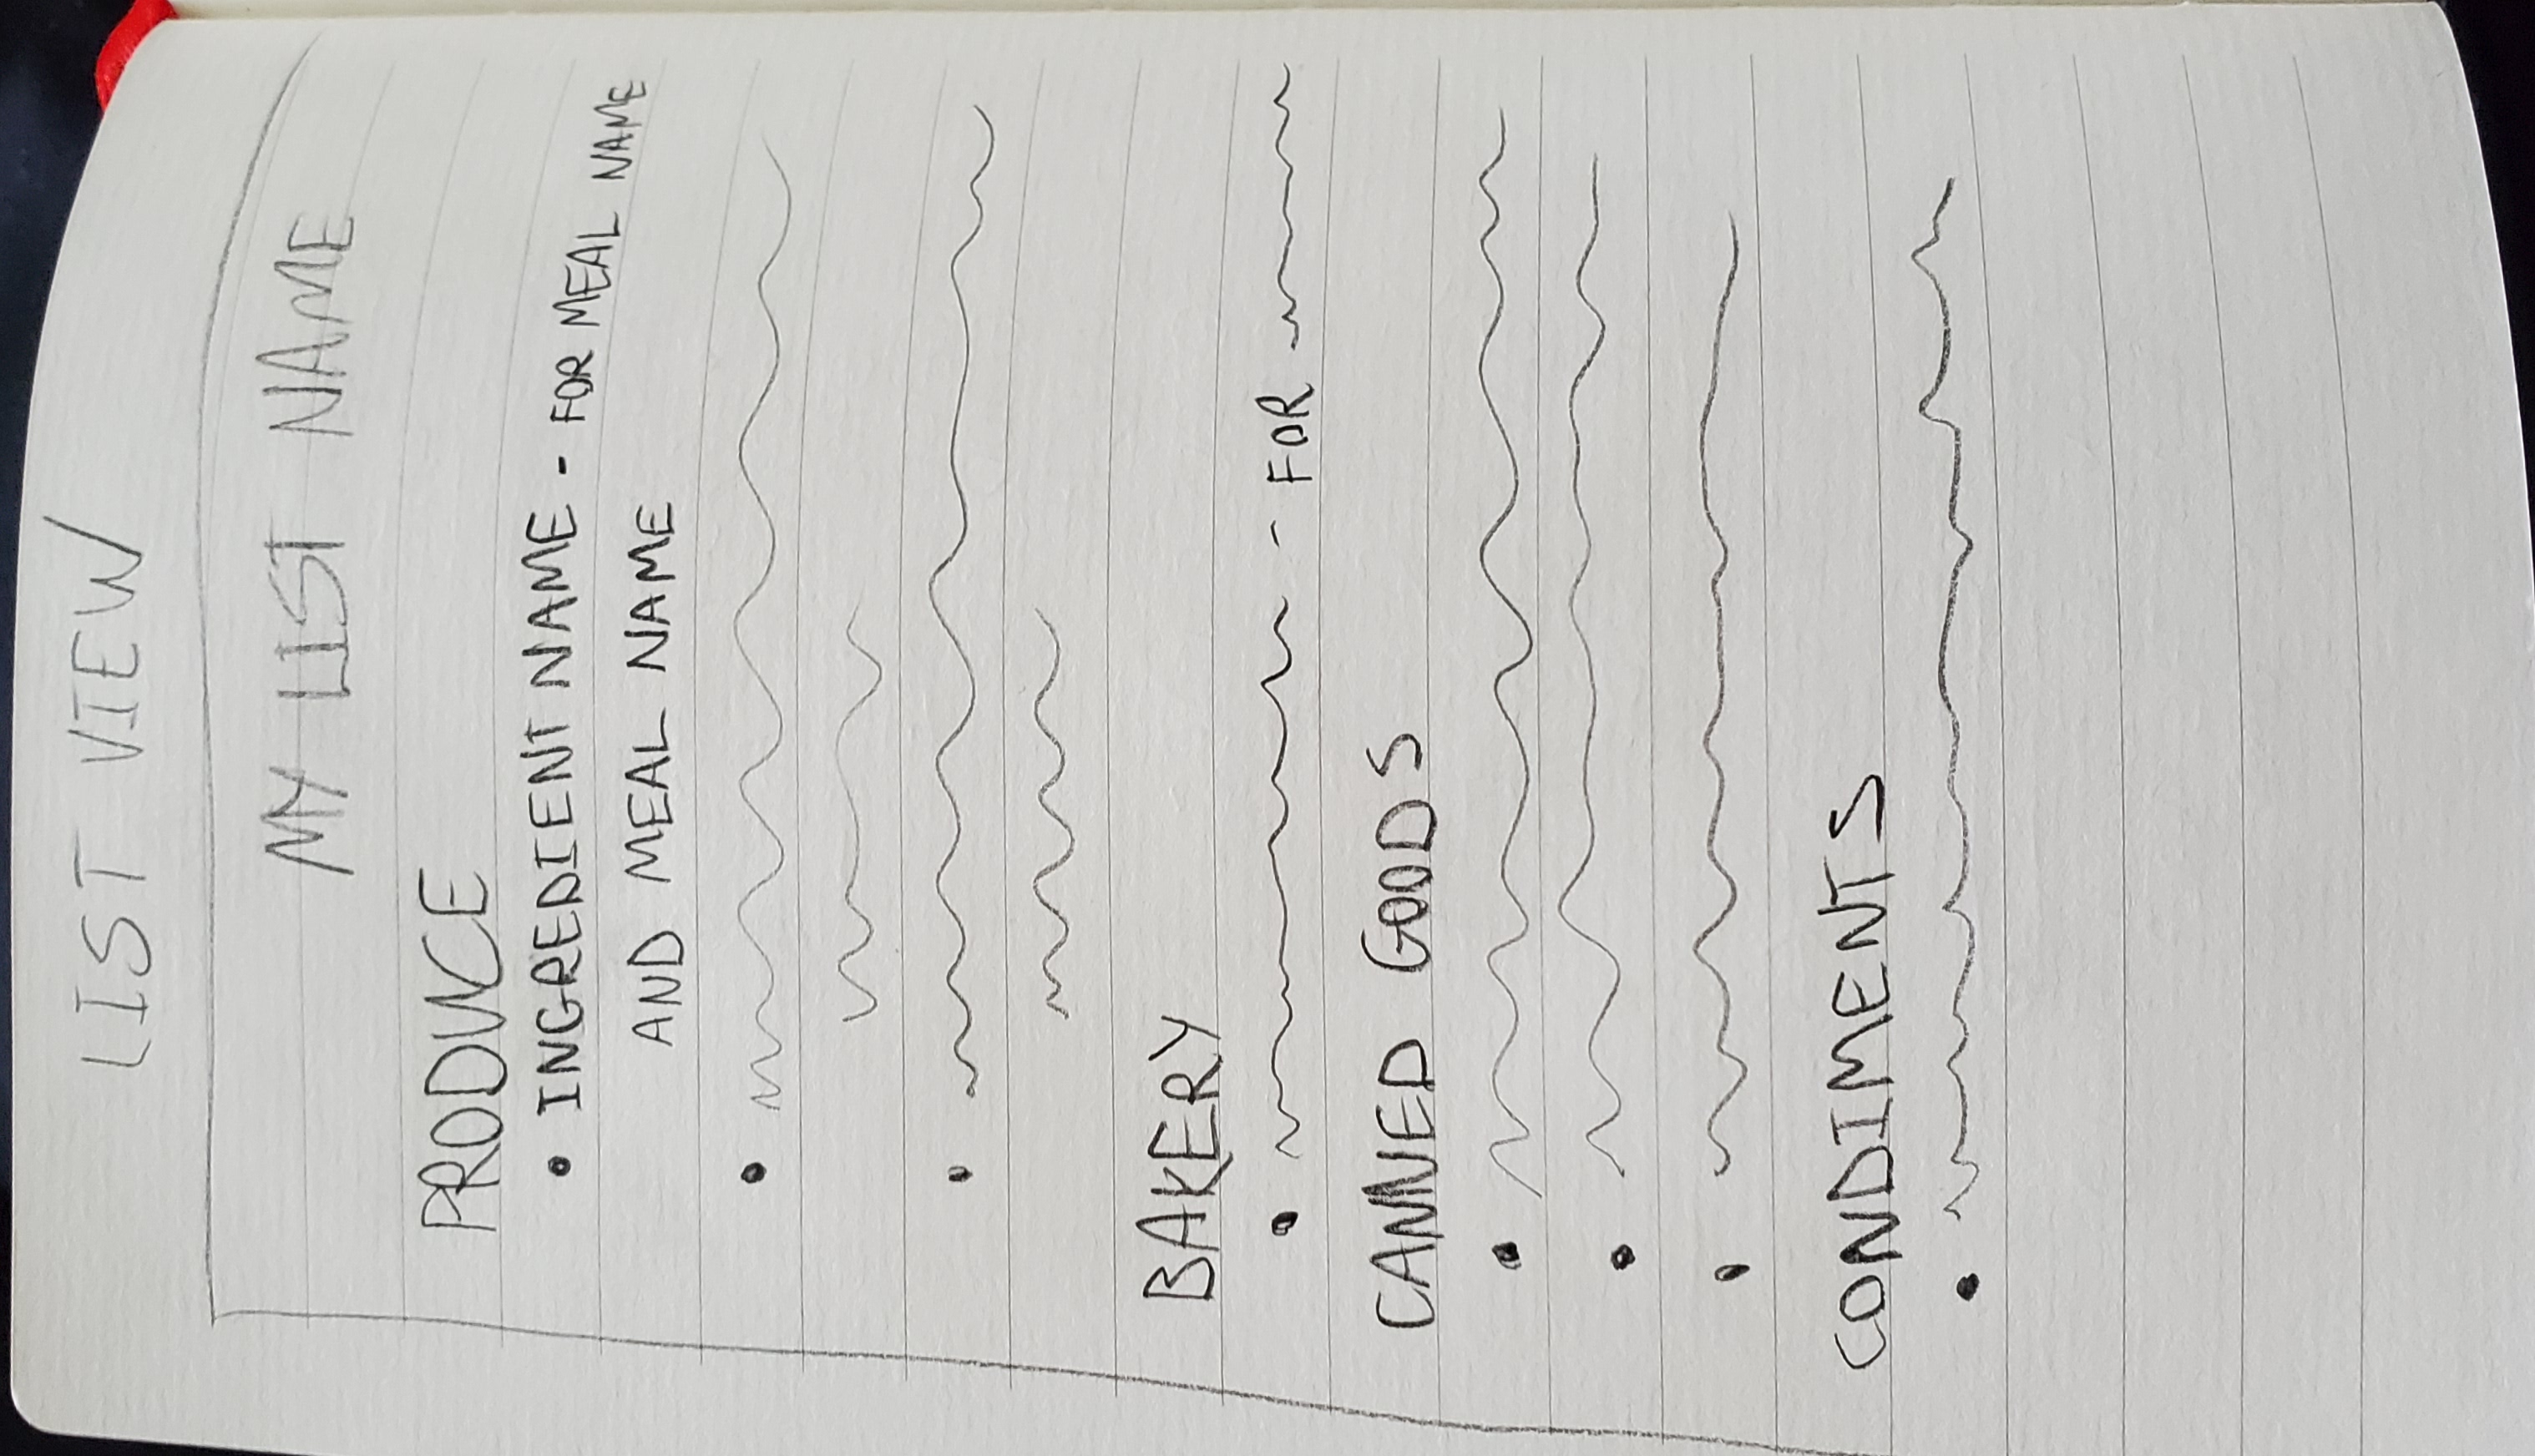 LIST VIEW
MY LIST NAME
PRODUCE
• INGREDIENT NAME - FOR MEAL NAME
AND MEAL NAME
•
•
BAKERY
• - FOR
CANNED GOODS
•
•
•
CONDIMENTS
•